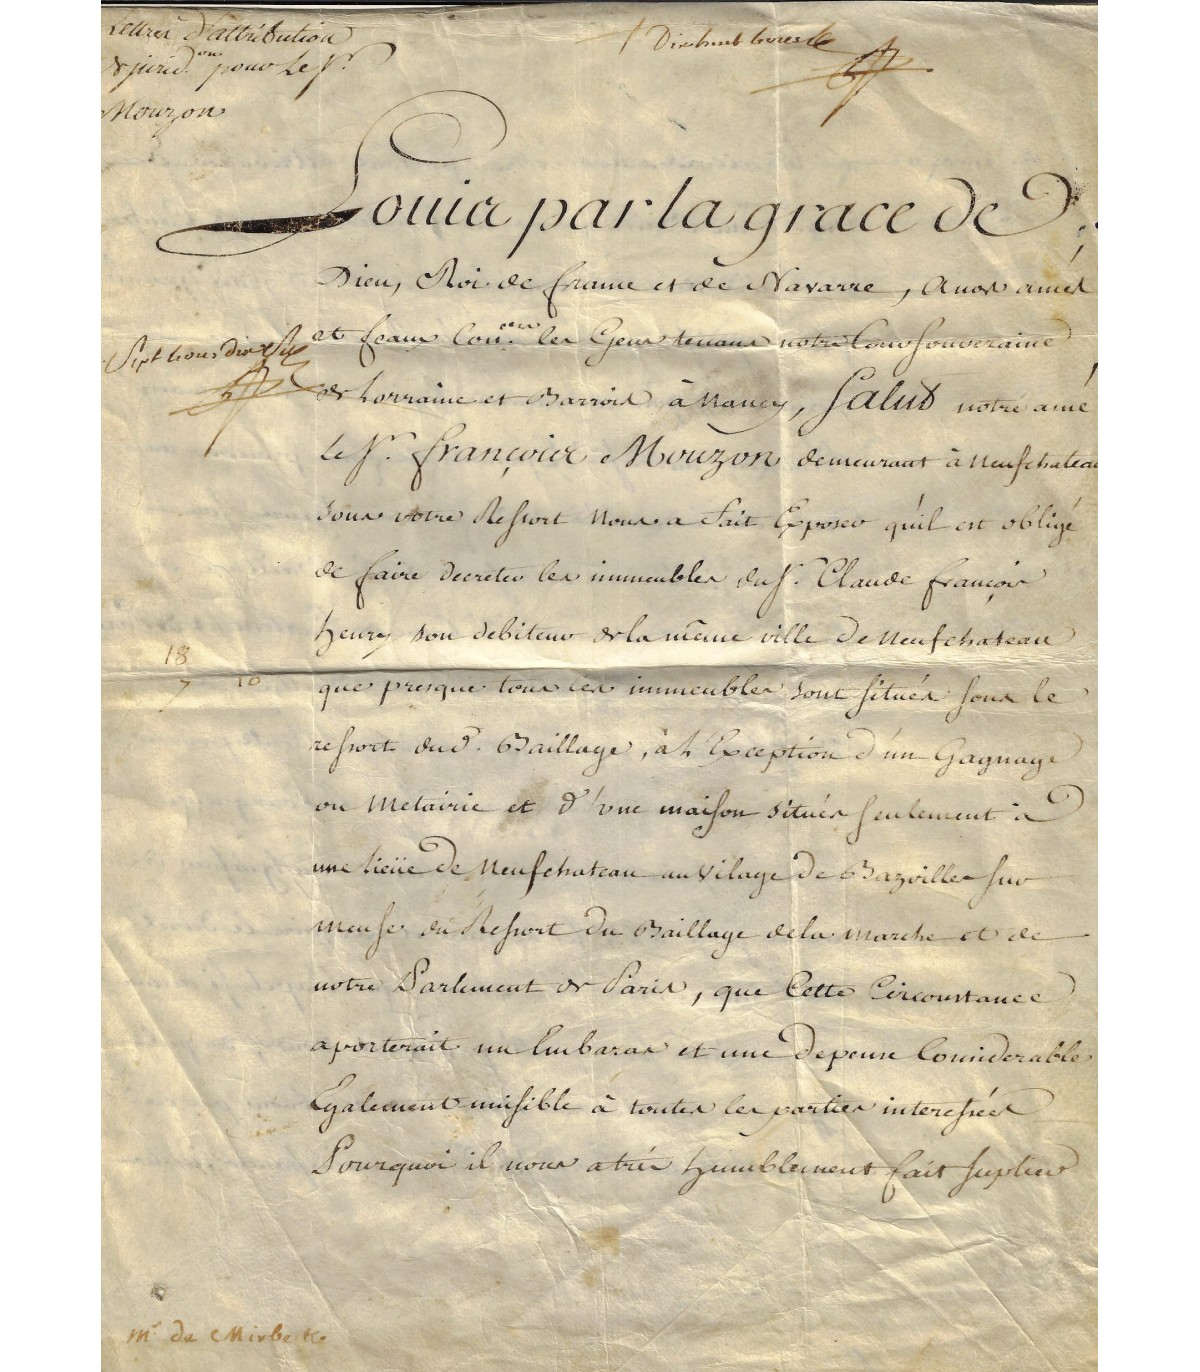 Lettres d'attribution
de jurid.on pour Le Sr.
Mouzon
Dix huit livres
Louis par la grace de
Dieu, Roi de france et de Navarre, A nos amés
et feaux Con.ers les Gens tenans notre Cour Souveraine
de Lorraine et Barrois à Nancy, Salut notre amé
Le Sr. François Mouzon demeurant à Neufchateau
sous votre Ressort Nous a fait Exposer qu'il est obligé
de faire decreter les immeubles du Sr. Claude françois
henry son debiteur de la même ville de Neufchateau
que presque tous ces immeubles sont situés sous le
ressort dud. Baillage, à L'Exception d'un Gagnage
ou Metairie et d'une maison situés seulement à
une lieüe de Neufchateau au vilage de Bazoilles sur
meuse du Ressort du Baillage de la marche et de
notre Parlement de Paris, que Cette Circonstance
aporterait un Embaras et une depense Considerable
Egalement nuisible à toutes les parties interessées
Pourquoi il nous a très humblement fait suplier
Sept livres dix s.
18
7 10
Mr. de Mirbeck